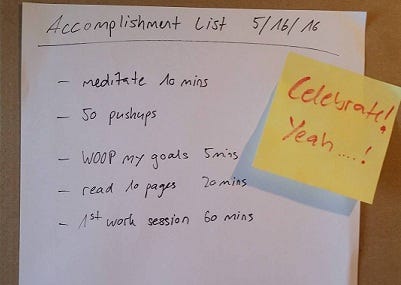 Accomplishment List 5/16/16
- meditate 10 mins
- 50 pushups
- WOOP my goals 5 mins
- read 10 pages 20 mins
- 1st work session 60 mins
Celebrate!
Yeah....!